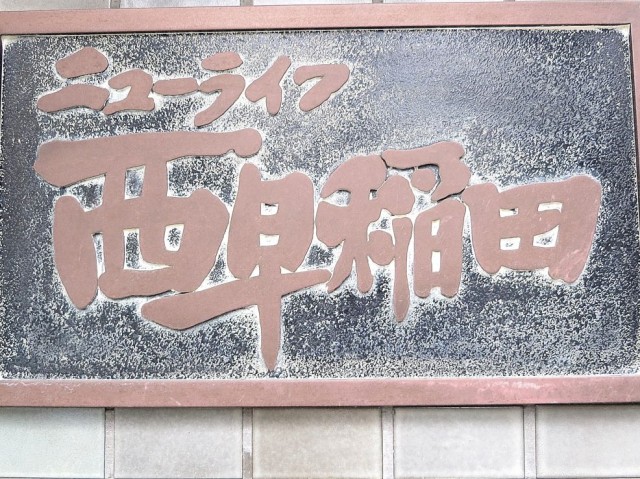 ニューライフ
西早稲田